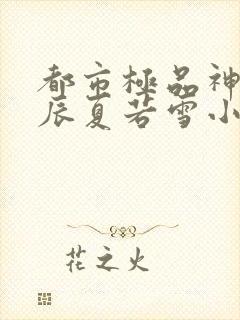 都市極品神
辰夏若雪小
花之火